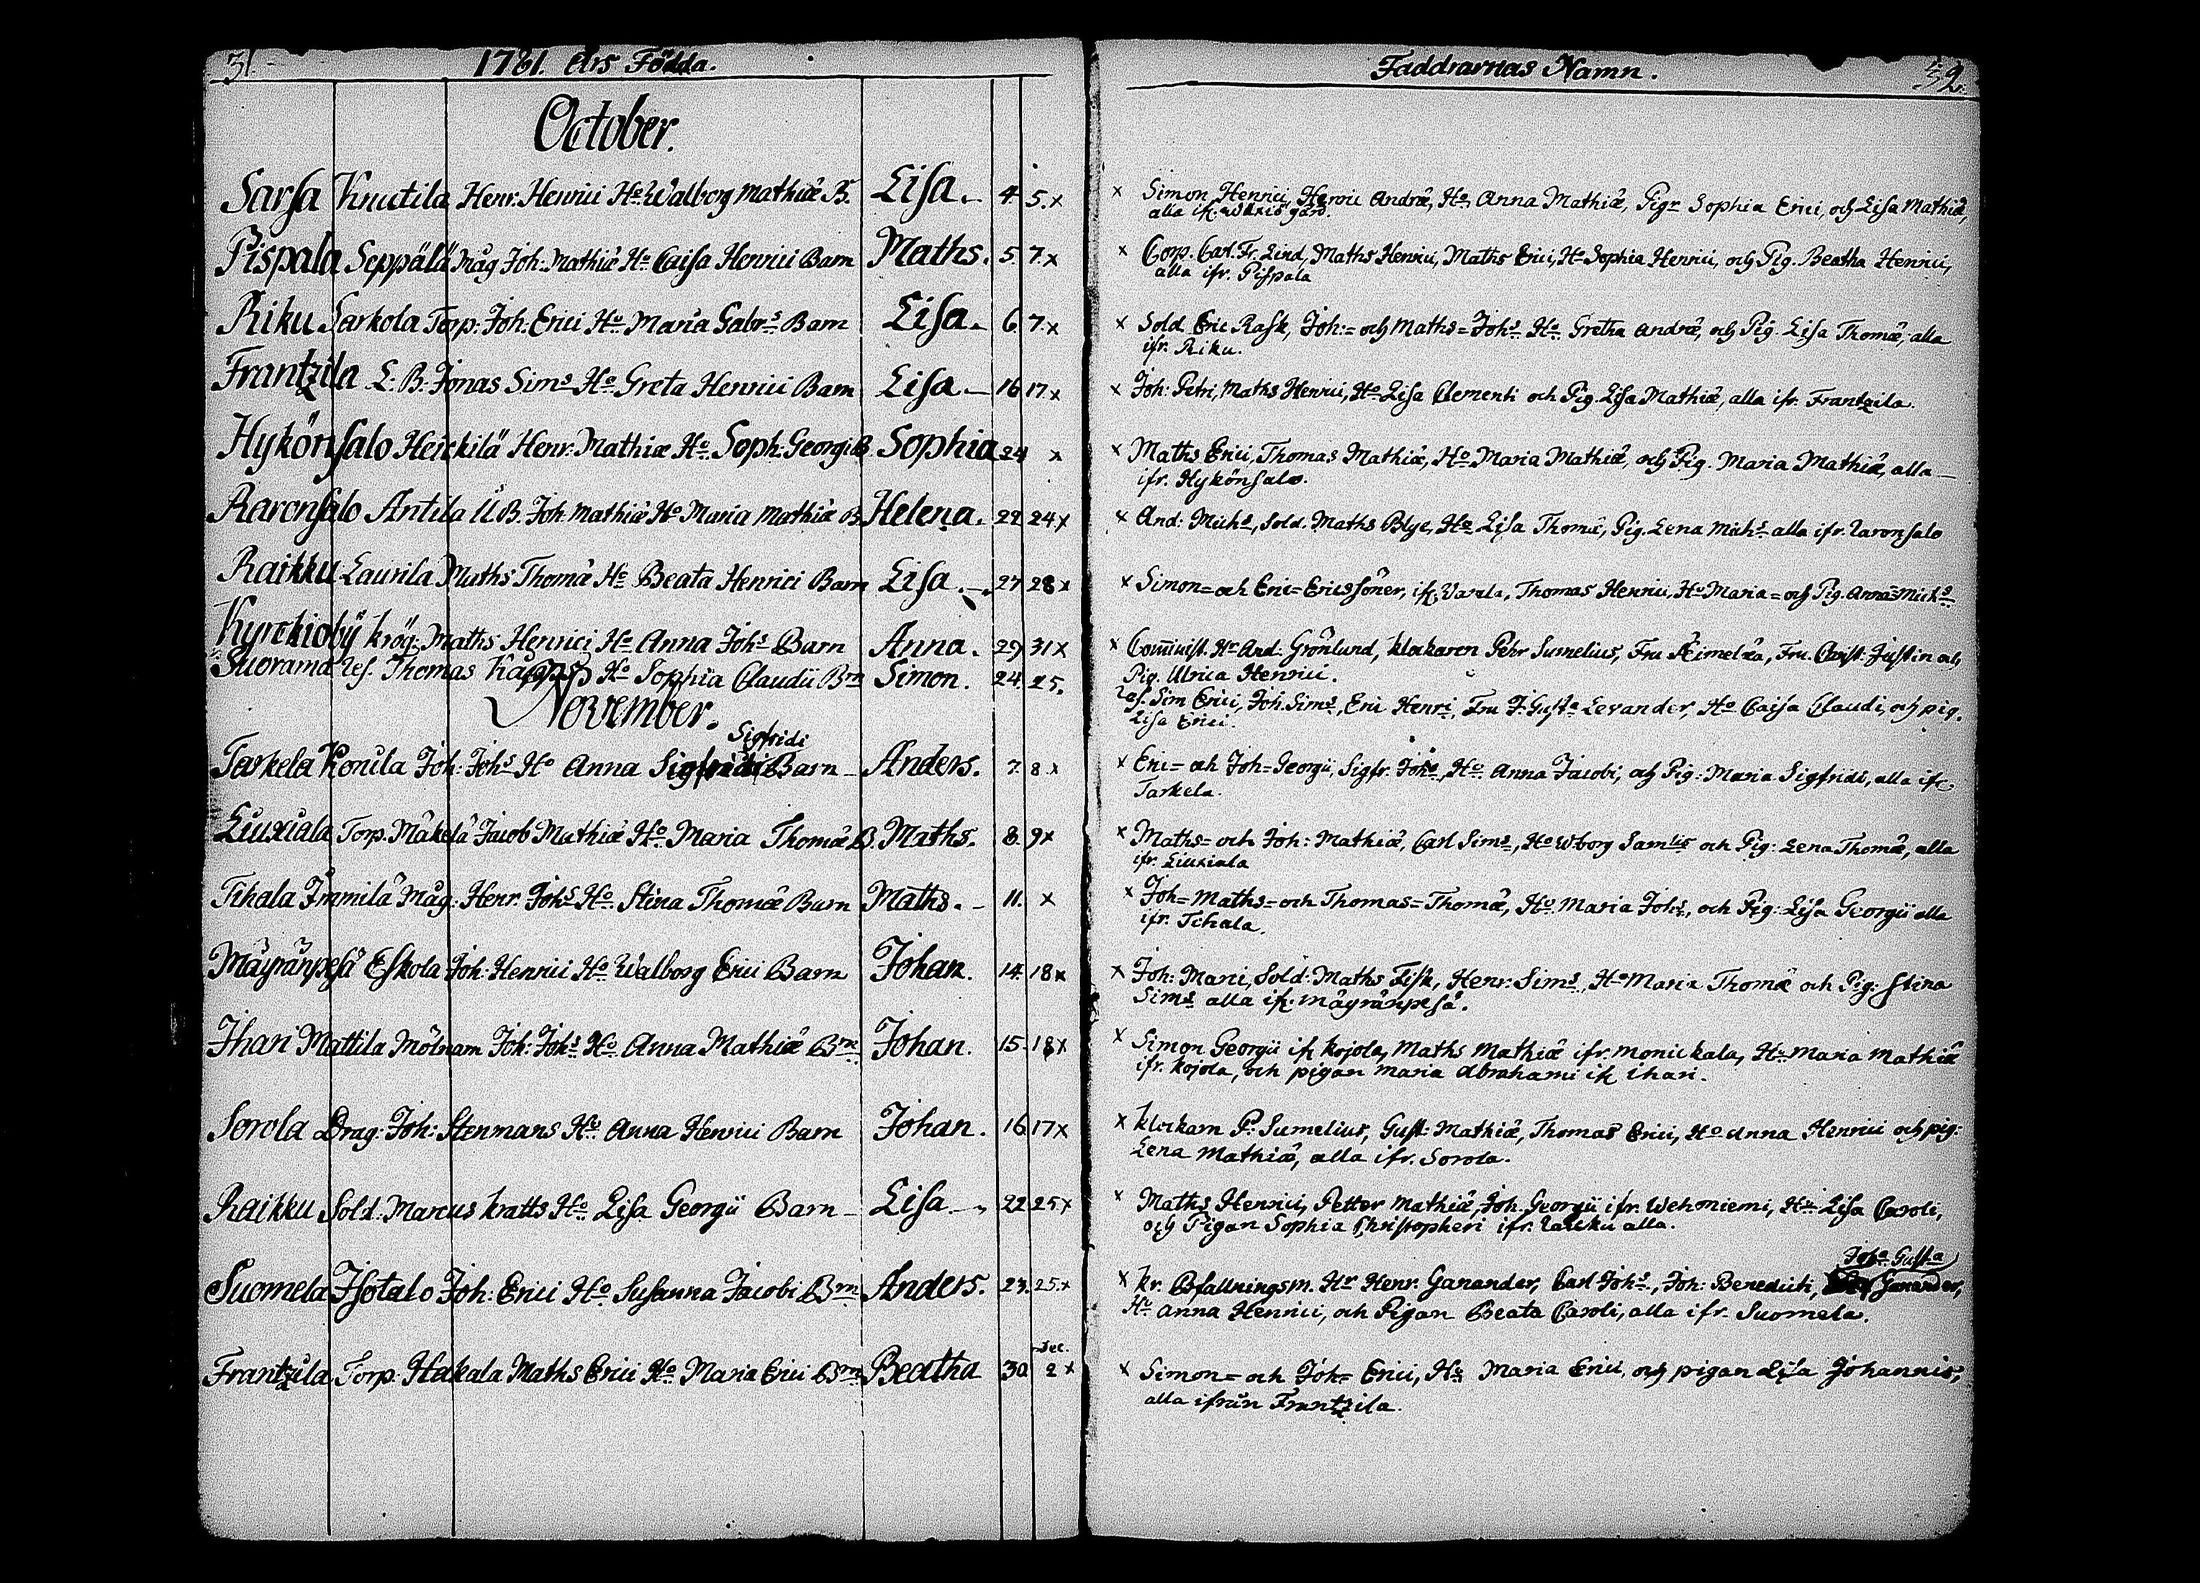 31.
1761. Års Födda.
October.
Sarsa Knutila Henr. Henrici Ho Walborg Mathiæ B. Lisa. 4 5. x
Pispala Seppälä Måg Joh: Mathiæ Ho Caisa Henrici Barn Maths. 5. 7. x
Riku Sarkola Torp: Joh: Erici Ho Maria Gabrs Barn Lisa. 6 7. x
Frantzila L. B. Jonas Sims Ho Greta Henrici Barn Lisa. 16 17. x
Hykönsalo Heickilä Henr. Mathiæ Ho Soph: Georgii B Sophia 24 x
Raronsalo Antila U B. Joh. Mathiæ Ho Maria Mathiæ B. Helena. 22 24 x
Raikku Laurila Maths Thomæ Ho Beata Henrici Barn Lisa. 27 28 x
Kyrckioby Krög: Maths Henrici Ho Anna Johs Barn Anna. 29 31 x
Suorama Thomas Ho Sophia Claudii Brn Simon. 24. 25.
November.
Sigfridi
Tarkela Konila Joh: Johs Ho Anna Sigfridi Barn Anders. 7. 8. x
Liuxiala Torp. Mäkelä Jacob Mathiæ Ho Maria Thomæ B. Maths. 8. 9 x
Tihala Immilä Måg: Henr. Johs Ho Stina Thomæ Barn Maths. 11. x
Mäyränpesä Eskola Joh: Henrici Ho Walborg Erici Barn Johan. 14. 18 x
Ihari Mattila Mölnarn Joh: Johs Ho Anna Mathiæ Brn Johan. 15. 18 x
Sorola Drag: Joh: Stenmans Hu Anna Henrici Barn Johan. 16 17 x
Raikku Sold: Marcus Kratts Ho Lisa Georgii Barn Lisa 22 25 x
Suomela Isotalo Joh: Erici Ho Susanna Jacobi Brn Anders. 23. 25. x
Dec.
Frantzila Torp: Hakala Maths Erici Ho Maria Erici Brn Beatha 30 2 x
Faddrarnas Namn. 32.
x Simon Henrici, Henric Andræ, Ho Anna Mathiæ, Pigr Sophia Erici, och Lisa Mathiæ,
alla ifr. gård.
x Corp. Carl. Fr. Lind, Maths Henrici, Maths Erici, Ho Sophia Henrici, och Pig. Beatha Henrici,
alla ifr. Pispala
x Sold. Eric Rask, Joh:= och Maths= Johs Ho Gretha Andræ, och Pig: Lisa Thomæ, alla
ifr. Riku.
x Joh: Petri, Maths Henrici, Ho Lisa Clementi och Pig. Lisa Mathiæ, alla ifr. Frantzila.
x Maths Erici, Thomas Mathiæ, Ho Maria Mathiæ, och Pig. Maria Mathiæ, alla
ifr. Hykönsalo.
x And: Michs, Sold. Maths Blye, Ho Lisa Thomæ, Pig. Lena Michs alla ifr. Raronsalo
x Simon= och Eric= Ericssöner, ifr. Warala, Thomas Henrici, Ho Maria= och Pig. Anna= Michs
x Comminist. Hr And. Grönlund, klockaren Pehr Sumelius, Fru Fru. Christ. Justin och
Pig. Ulrica Henrici.
Sim Erici, Joh. Sims, Eric Henri, Fru J: Gusta Levander, Ho Caisa Claudi, och pig.
Lisa Erici.
x Eric= och Joh= Georgii, Sigfr. Johs, Ho Anna Jacobi, och Pig: Maria Sigfridi, alla ifr.
Tarkela.
x Maths= och Joh: Mathiæ, Carl Sims, Ho Wborg Samlis och Pig: Lena Thomæ, alla
ifr. Liuxiala
x Joh= Maths= och Thomas= Thomæ, Ho Maria Johs, och Pig: Lisa Georgii alla
ifr. Tihala.
x Joh: Marci, Sold: Maths Fisk, Henr: Sims, Ho Maria Thomæ och Pig: Stina
Sims alla ifr. Mäyränpesä.
x Simon Georgii ifr. Kojola, Maths Mathiæ ifr. Monickala, Ho Maria Mathiæ
ifr. Kojola, och pigan Maria Abrahami ifr. Ihari.
x klockarn P: Sumelius, Gust: Mathiæ, Thomas Erici, Ho Anna Henrici och pig:
Lena Mathiæ, alla ifr. Sorola.
x Maths Henrici, Petter Mathiæ, Joh. Georgii ifr. Wehoniemi, Hu Lisa Caroli,
och Pigan Sophia Christopheri ifr. Raicku alla.
Joha Gusta
x kr. Bfallningsm. Hr Henr. Ganander, Carl Johs, Joh: Benedicti, Ganander,
Hu Anna Henrici, och Pigan Beata Caroli, alla ifr. Suomela.
x Simon= och Joh= Erici, Hu Maria Erici, och pigan Lisa Johannis,
alla ifrån Frantzila.